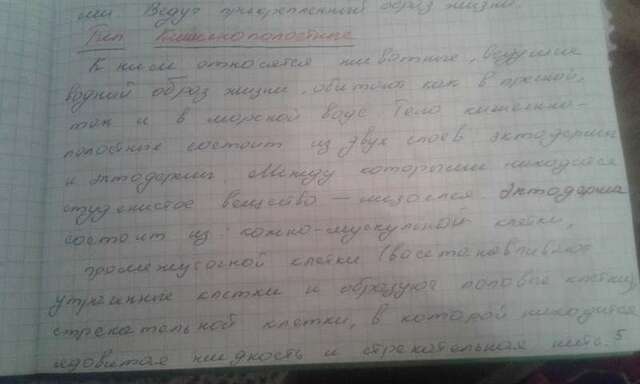 ми. Ведут прикрепленный образ жизни.
Тип Кишечнополостные
К ним относятся животные, ведущие
водный образ жизни, обитают как в пресной,
так и в морской воде. Тело кишечно-
полостных состоит из двух слоев: эктодермы
и энтодермы. Между которыми находится
студенистое вещество — мезоглея. Эктодерма
состоит из: кожно-мускульной клетки,
промежуточной клетки (восстанавливают
утраченные клетки и образуют половые клетки)
стрекательной клетки, в которой находится
ядовитая жидкость и стрекательная нить.